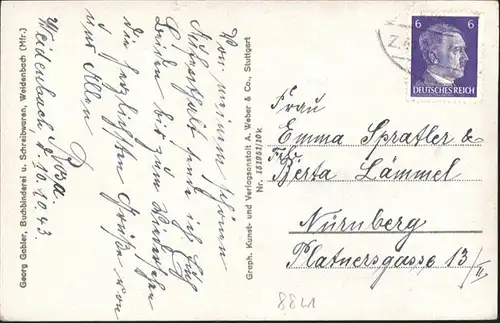 Weidenbach d. 10.10.43.
Von meinem schönen
Aufenthalt sende ich Euch
Beiden bis zum Wiedersehen
die herzlichsten Grüße von
uns Allen
Rosa.
Georg Gabler, Buchbinderei u. Schreibwaren, Weidenbach (Mfr.)
Graph. Kunst- und Verlagsanstalt A. Weber & Co., Stuttgart
Nr. 151951/10k
6 6
DEUTSCHES REICH
Frau
Emma Spratler &
Frl.
Berta Lämmel
Nürnberg
Platnersgasse 13/II